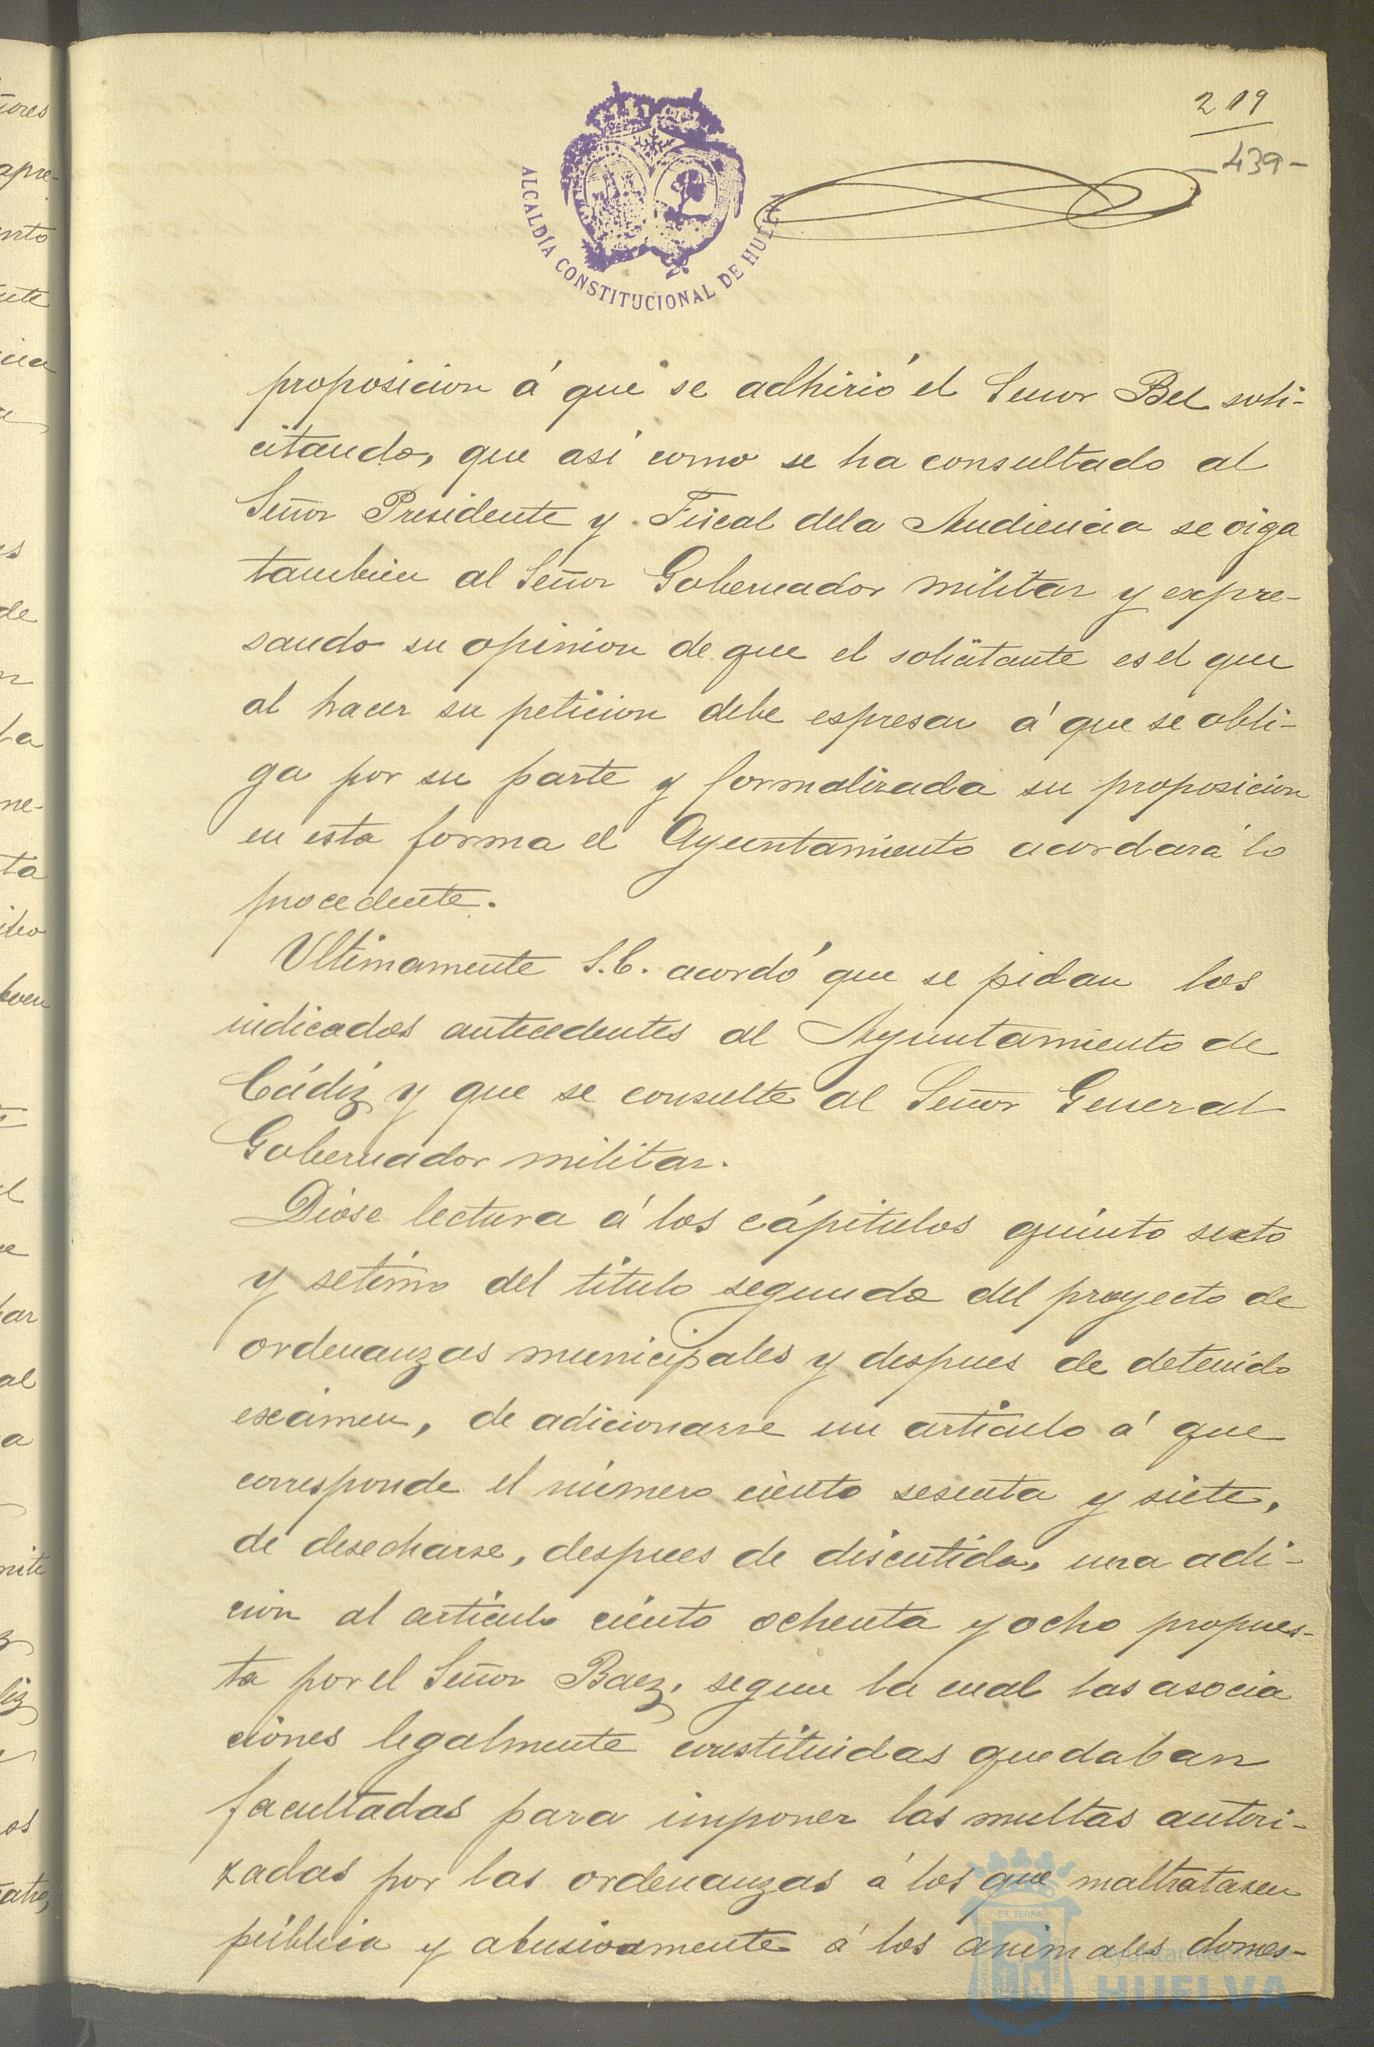 219
439-
ALCALDÍA CONSTITUCIONAL DE HUELVA
proposicion á que se adhirió el Señor Bel soli-
citando, que así como se ha consultado al
Señor Presidente y Fiscal dela Audiencia se oiga
tambien al Señor Gobernador militar y expre-
sando su opinion de que el solicitante es el que
al hacer su peticion debe espresar á que se obli-
ga por su parte y formalizada su proposicion
en esta forma el Ayuntamiento acordará lo
procedente.
Ultimamente S.C. acordó que se pidan los
indicados antecedentes al Ayuntamiento de
Cádiz y que se consulte al Señor General
Gobernador militar.
Dióse lectura á los cápitulos quinto sexto
y setimo del titulo segundo del proyecto de
ordenanzas municipales y despues de detenido
exámen, de adicionarse un artículo á que
corresponde el número ciento sesenta y siete,
de desecharse, despues de discutida, una adi-
cion al artículo ciento ochenta y ocho propues-
ta por el Señor Baez, segun la cual las asocia
ciones legalmente constituidas quedaban
facultadas para imponer las multas autori-
zadas por las ordenanzas á los que maltratasen
pública y abusivamente á los animales domes-
Ayuntamiento de
HUELVA